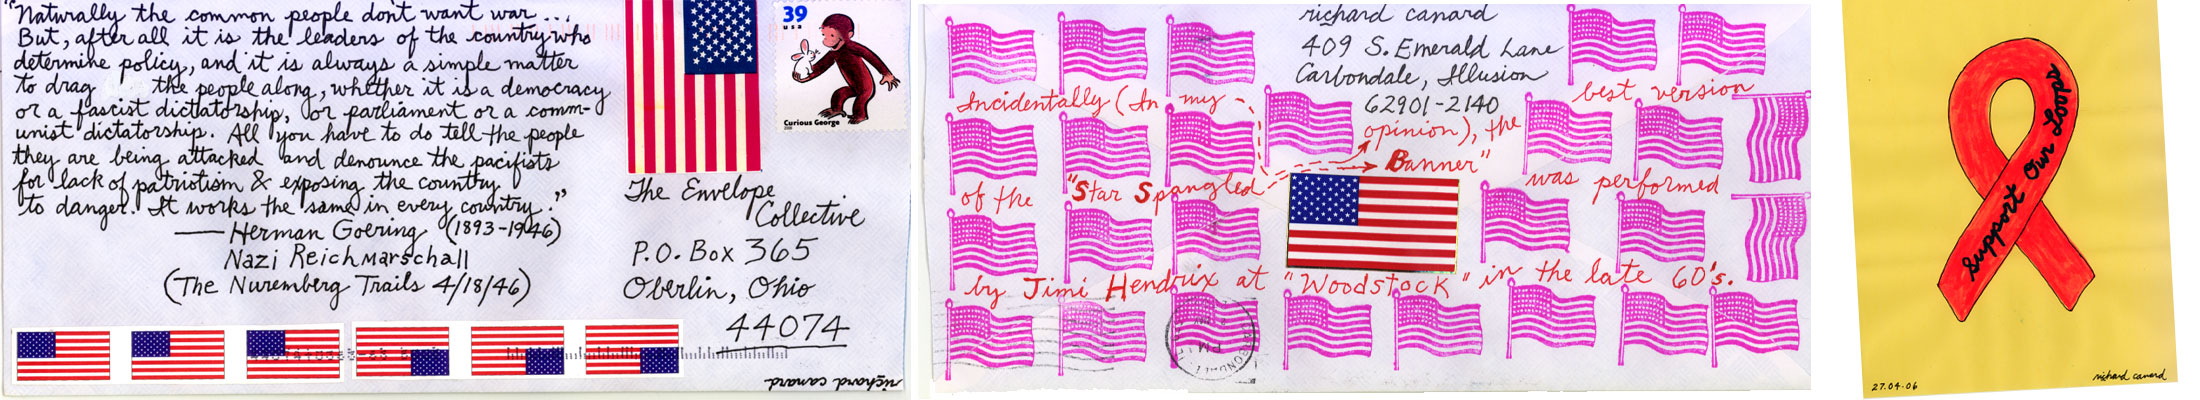 "Naturally the common people don't want war...
But, after all it is the leaders of the country who
determine policy, and it is always a simple matter
to drag the people along, whether it is a democracy
or a fascist dictatorship, or parliament or a comm-
unist dictatorship. All you have to do tell the people
they are being attacked and denounce the pacifists
for lack of patriotism & exposing the country
to danger. It works the same in every country."
— Herman Goering (1893-1946)
Nazi Reichmarschall
(The Nuremberg Trails 4/18/46)
39
usa
Curious George
2006
The Envelope
Collective
P.O. Box 365
Oberlin, Ohio
44074
richard canard
richard canard
409 S. Emerald Lane
Carbondale, Illusion
62901-2140
Incidentally (In my
opinion), the
best version
of the "Star Spangled
Banner"
was performed
by Jimi Hendrix at "Woodstock" in the late 60's.
PM
Support Our Loops
27.04.06
richard canard